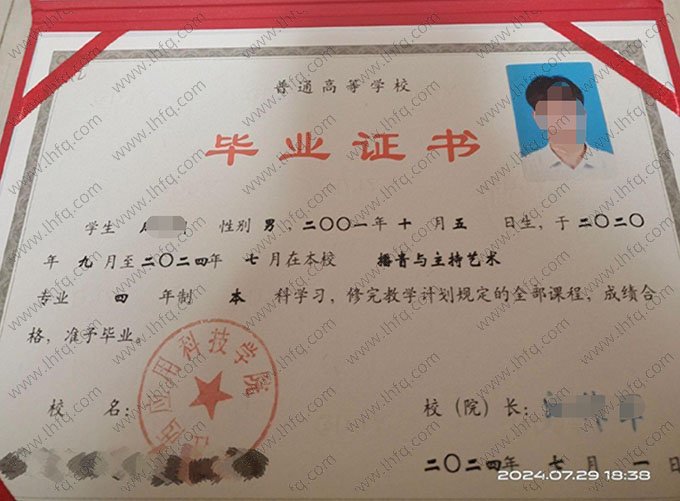 普通高等学校
毕业证书
学生 性别 男，二〇〇一年 十 月 五 日生，于 二〇二〇
年 九 月至 二〇二四年 七 月在本校 播音与主持艺术
专业 四 年制 本 科学习，修完教学计划规定的全部课程，成绩合
格，准予毕业。
应用科技学院
校 名： 校（院）长：
二〇二四年 七 月 一 日
2024.07.29 18:38
www.lhfq.com